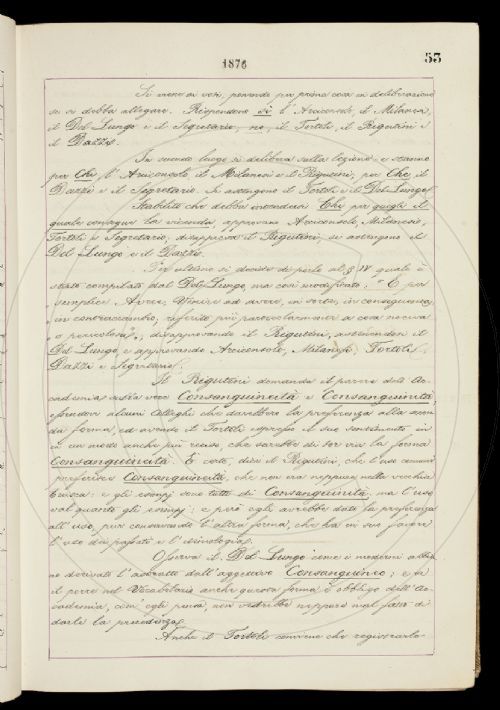 1876
53
Si mette ai voti, ponendo per prima cosa in deliberazione
se si debba allegare. Rispondono sì l'Arciconsolo, il Milanesi,
il Del Lungo e il Segretario, no, il Tortoli, il Rigutini e
il Dazzi.
In secondo luogo si delibera sulla lezione, e stanno
per Chè l'Arciconsolo il Milanesi e il Rigutini, per Che il
Dazzi e il Segretario. Si astengono il Tortoli e il Del Lungo.
Stabilito che debba intendersi Chè per quegli il
quale consegue la vicenda, approvano Arciconsolo, Milanesi,
Tortoli e Segretario, disapprova il Rigutini, si astengono il
Del Lungo e il Dazzi.
Per ultimo si decide di porlo al § IV quale è
stato compilato dal Del Lungo, ma così modificato. "E per
semplice Avere, Venire ad avere, in sorte, in conseguenza,
in contraccambio, riferito più particolarmente a cosa nociva
o pericolosa"; disapprovando il Rigutini, astenendosi il
Del Lungo, e approvando Arciconsolo, Milanesi, Tortoli,
Dazzi e Segretario.
Il Rigutini domanda il parere dell'Ac-
cademia sulla voce Consanguineità e Consanguinità,
essendovi alcuni Colleghi che darebbero la preferenza alla secon-
da forma, ed avendo il Tortoli espresso il suo sentimento in
in un modo anche più reciso, che sarebbe di tor via la forma
Consanguineità. È certo, dice il Rigutini, che l'uso comune
preferisce Consanguineità, che non era neppure nella vecchia
Crusca: e gli esempj sono tutti di Consanguinità, ma l'uso
val quanto gli esempj: e però egli avrebbe data la preferenza
all'uso, pur conservando l'altra forma, che ha in suo favore
l'uso dei passati e l'etimologia.
Osserva il Del Lungo come i moderni abbia-
no derivato l'astratto dall'aggettivo Consanguineo; e se
il porre nel Vocabolario anche questa forma è obbligo dell'Ac-
cademia, com'egli pensa, non vedrebbe neppure mal fatto di
darle la precedenza.
Anche il Tortoli conviene che registrarla